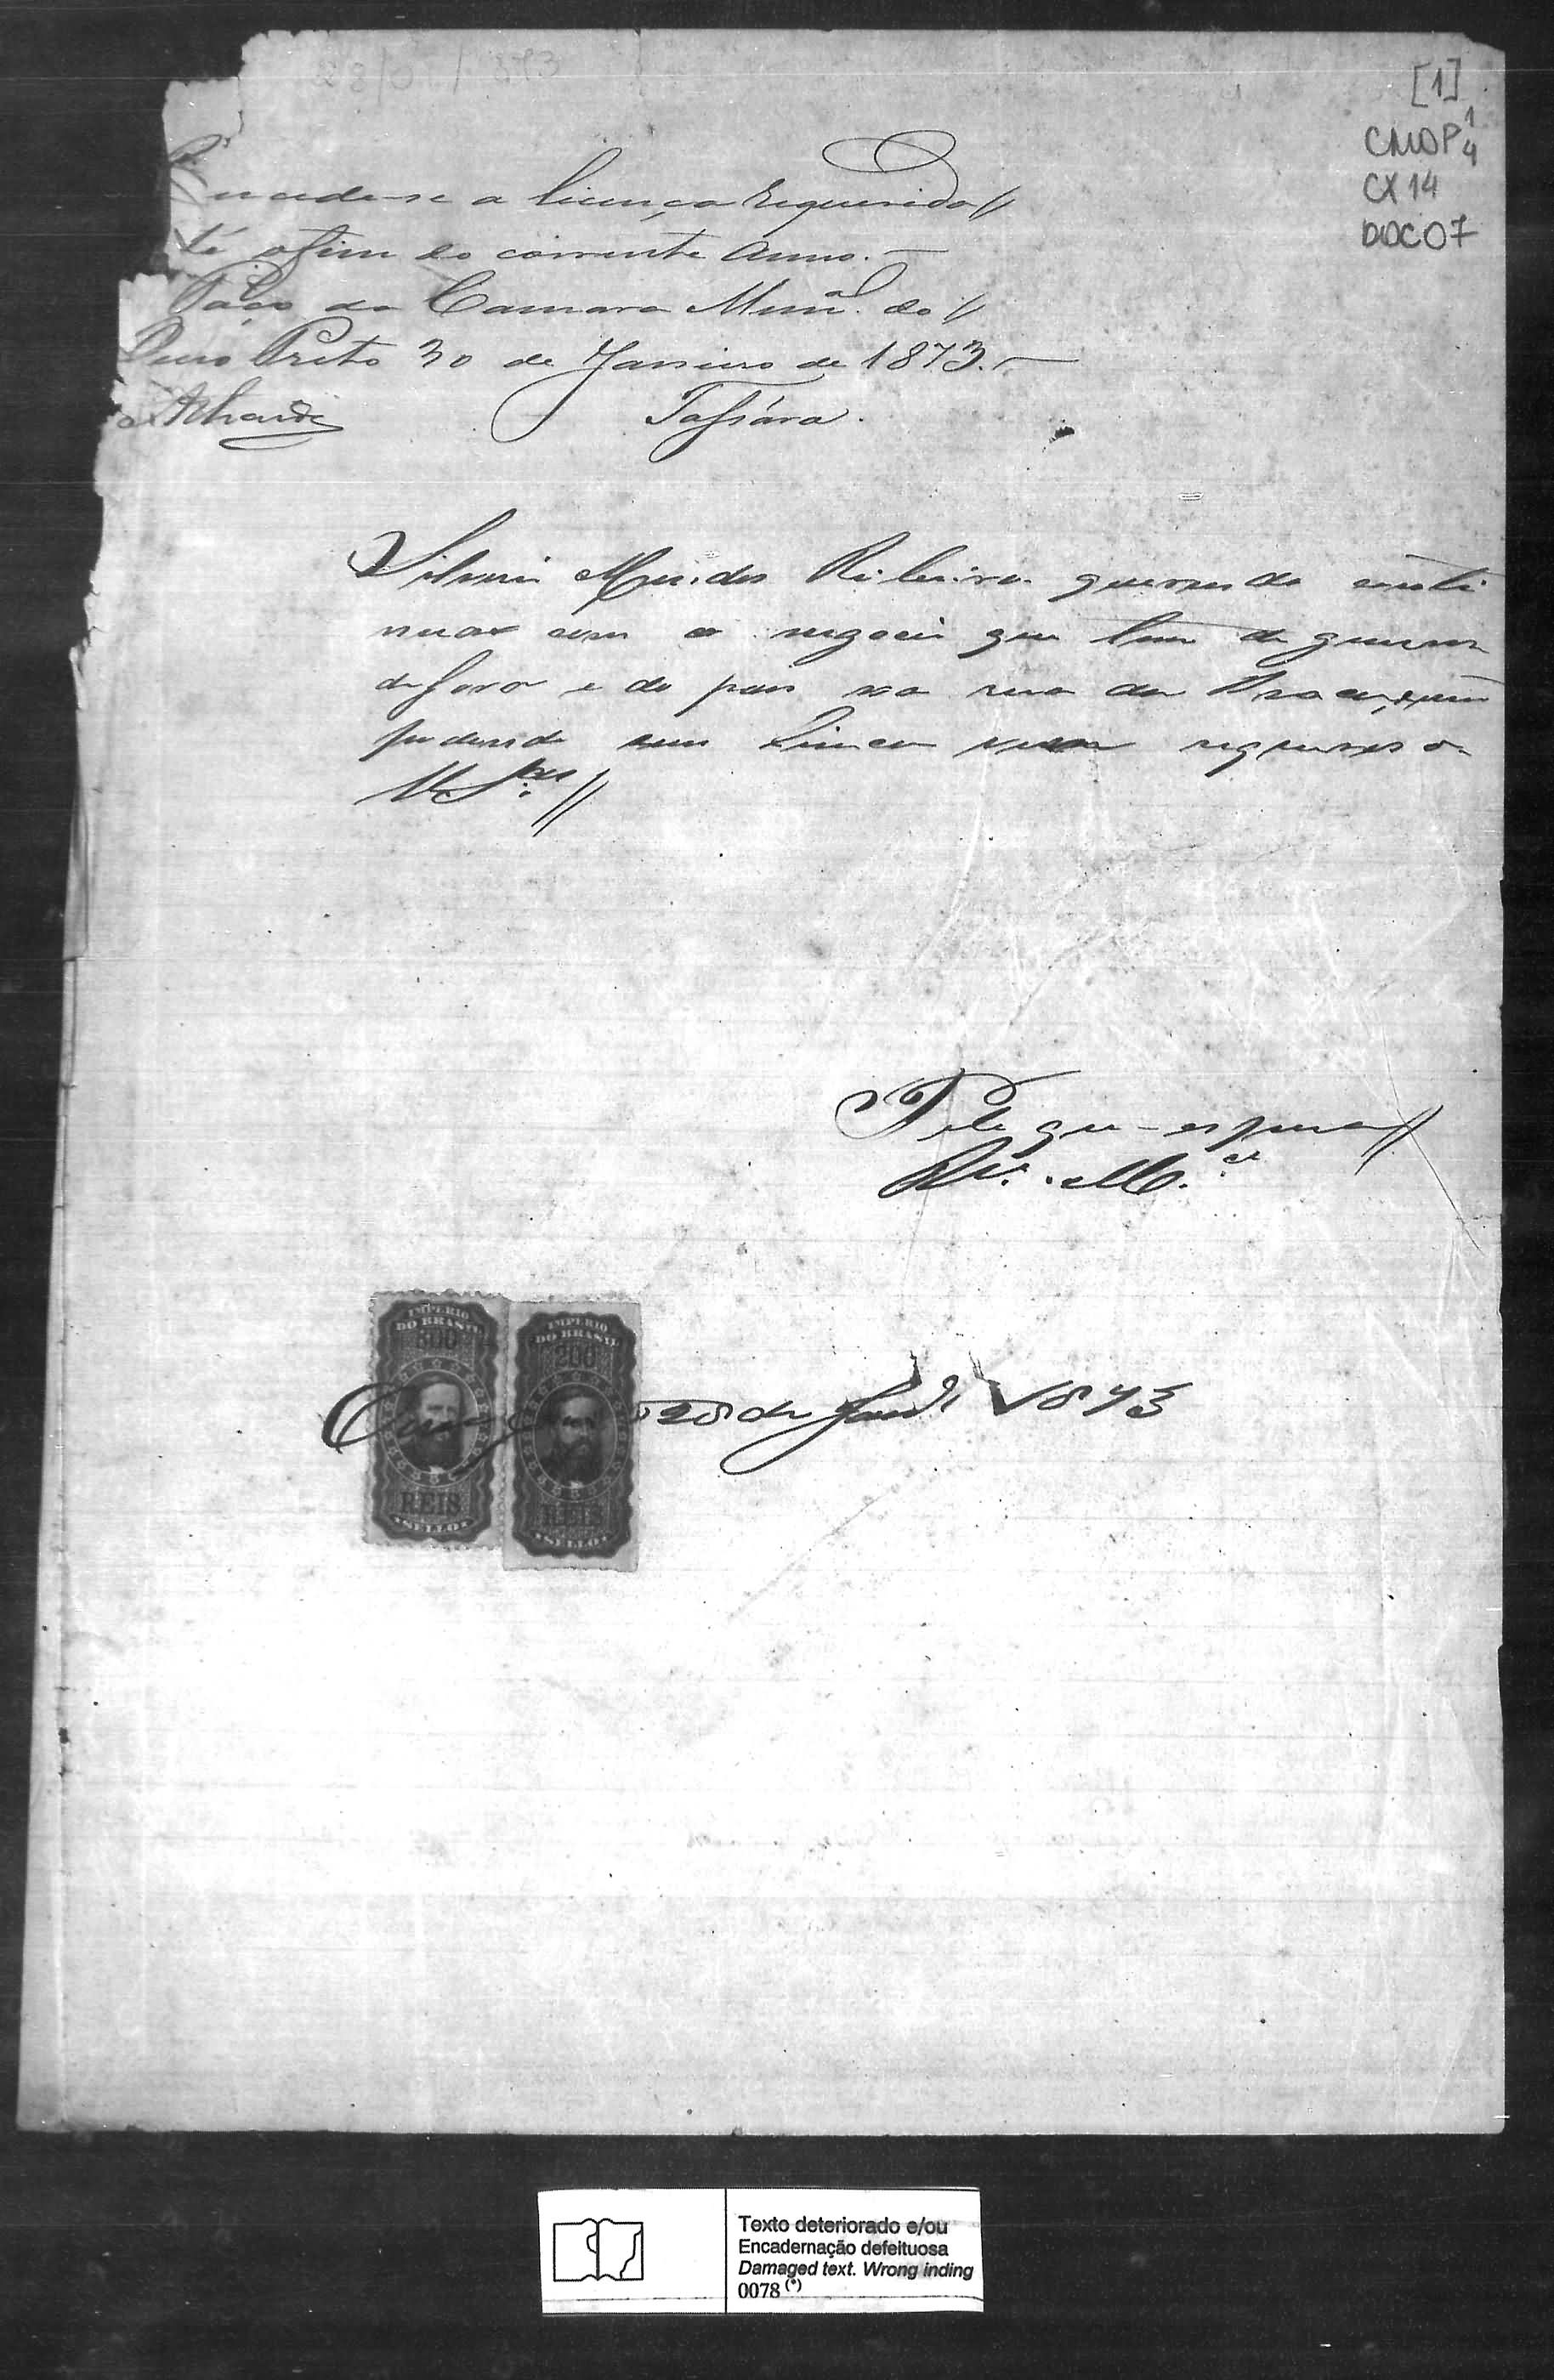 28/01/1873
[1]
CMOP 1/4
CX 14
DOC 07
Concede-se a licença requerida//
té o fim do corrente anno.—
Paço da Camara Mun.al do//
Ouro Preto 30 de Janeiro de 1873.—
Tassára.
Mendes Ribeiro querendo conti
nuar com o negocio que tem de generos
de fora e do pais na rua da
podendo sem licença vem requerer a
V S.as//
P. e que espera//
R. M.ce
Ouro Preto 28 de Janr.o 1873
IMPERIO
DO BRASIL
300
REIS
SELLO
IMPERIO
DO BRASIL
200
REIS
SELLO
Texto deteriorado e/ou
Encadernação defeituosa
Damaged text. Wrong inding
0078 (*)